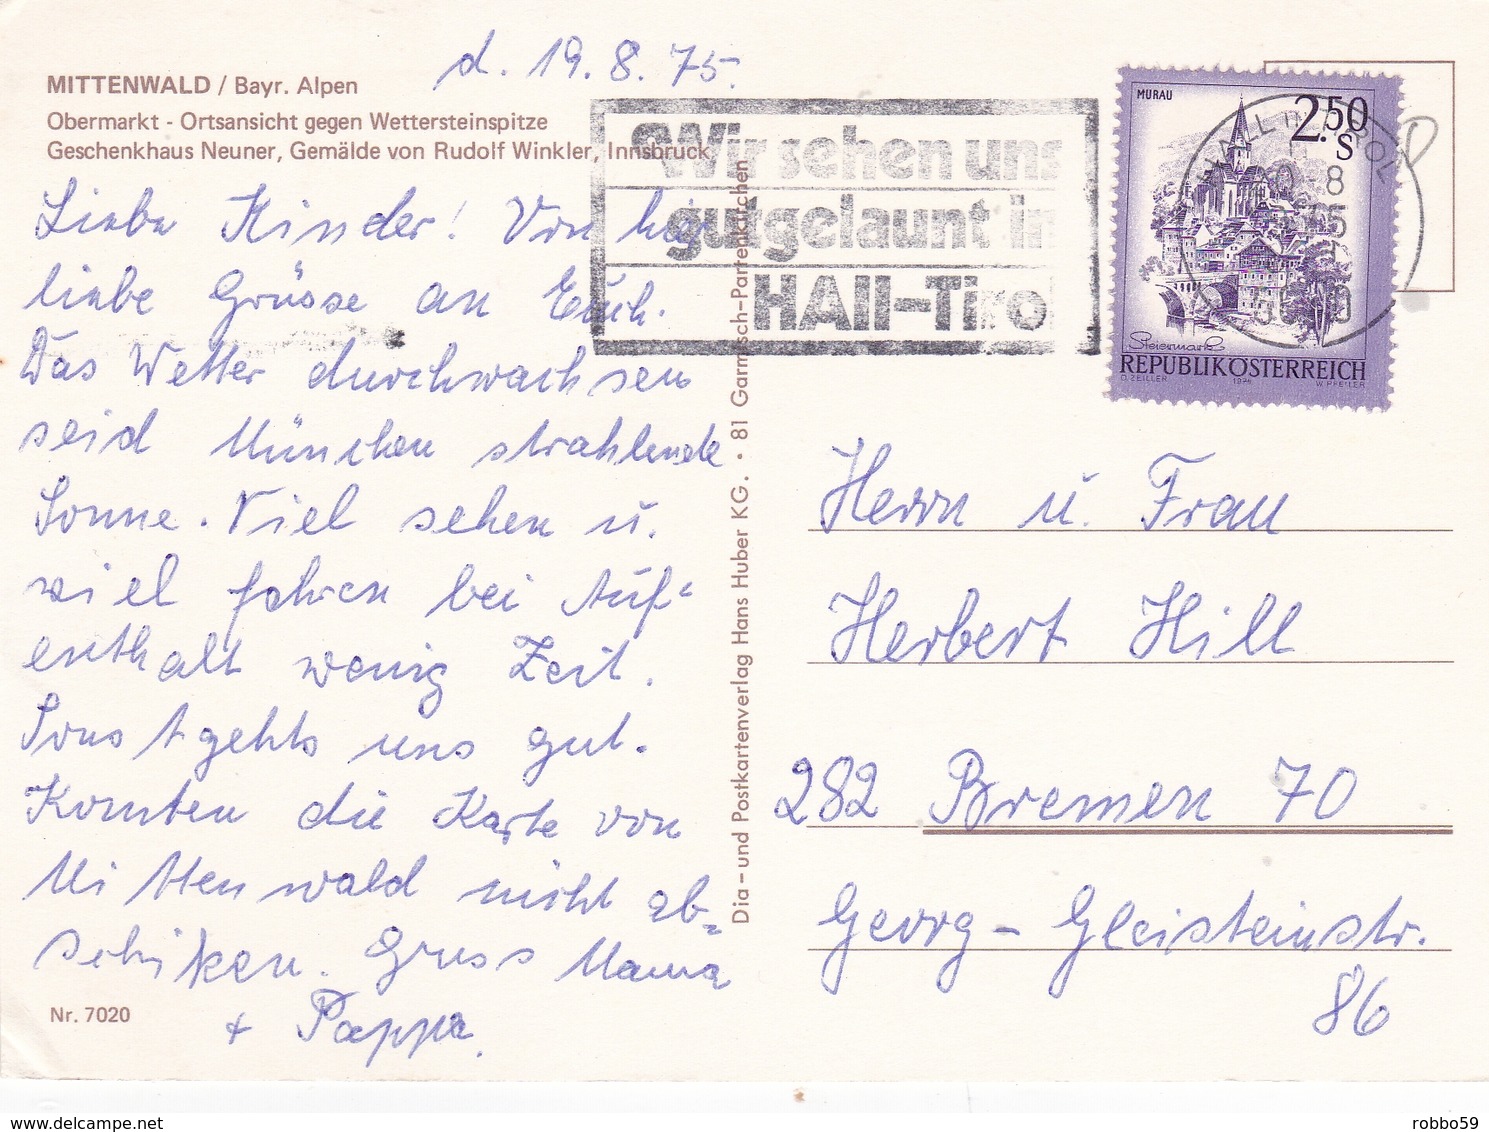 d. 19. 8. 75.
MITTENWALD / Bayr. Alpen
Obermarkt - Ortsansicht gegen Wettersteinspitze
Geschenkhaus Neuner, Gemälde von Rudolf Winkler, Innsbruck
Liebe Kinder! Von hier
liebe Grüsse an Euch.
Das Wetter durchwachsen
seid München strahlende
Sonne. Viel sehen u.
viel fahren bei Auf-
enthalt wenig Zeit.
Sonst gehts uns gut.
Konnten die Karte von
Mittenwald nicht ab-
schiken. Gruss Mama
+ Pappa.
Nr. 7020
Dia- und Postkartenverlag Hans Huber KG. · 81 Garmisch-Partenkirchen
Wir sehen uns
gutgelaunt in
HAll-Tirol
MURAU
2.50
S
Steiermark
REPUBLIK ÖSTERREICH
O. ZEILLER 1974 W. PFEILER
HALL in TIROL
-8
75
Herrn u. Frau
Herbert Hill
282 Bremen 70
Georg-Gleisteinstr.
86
robbo59